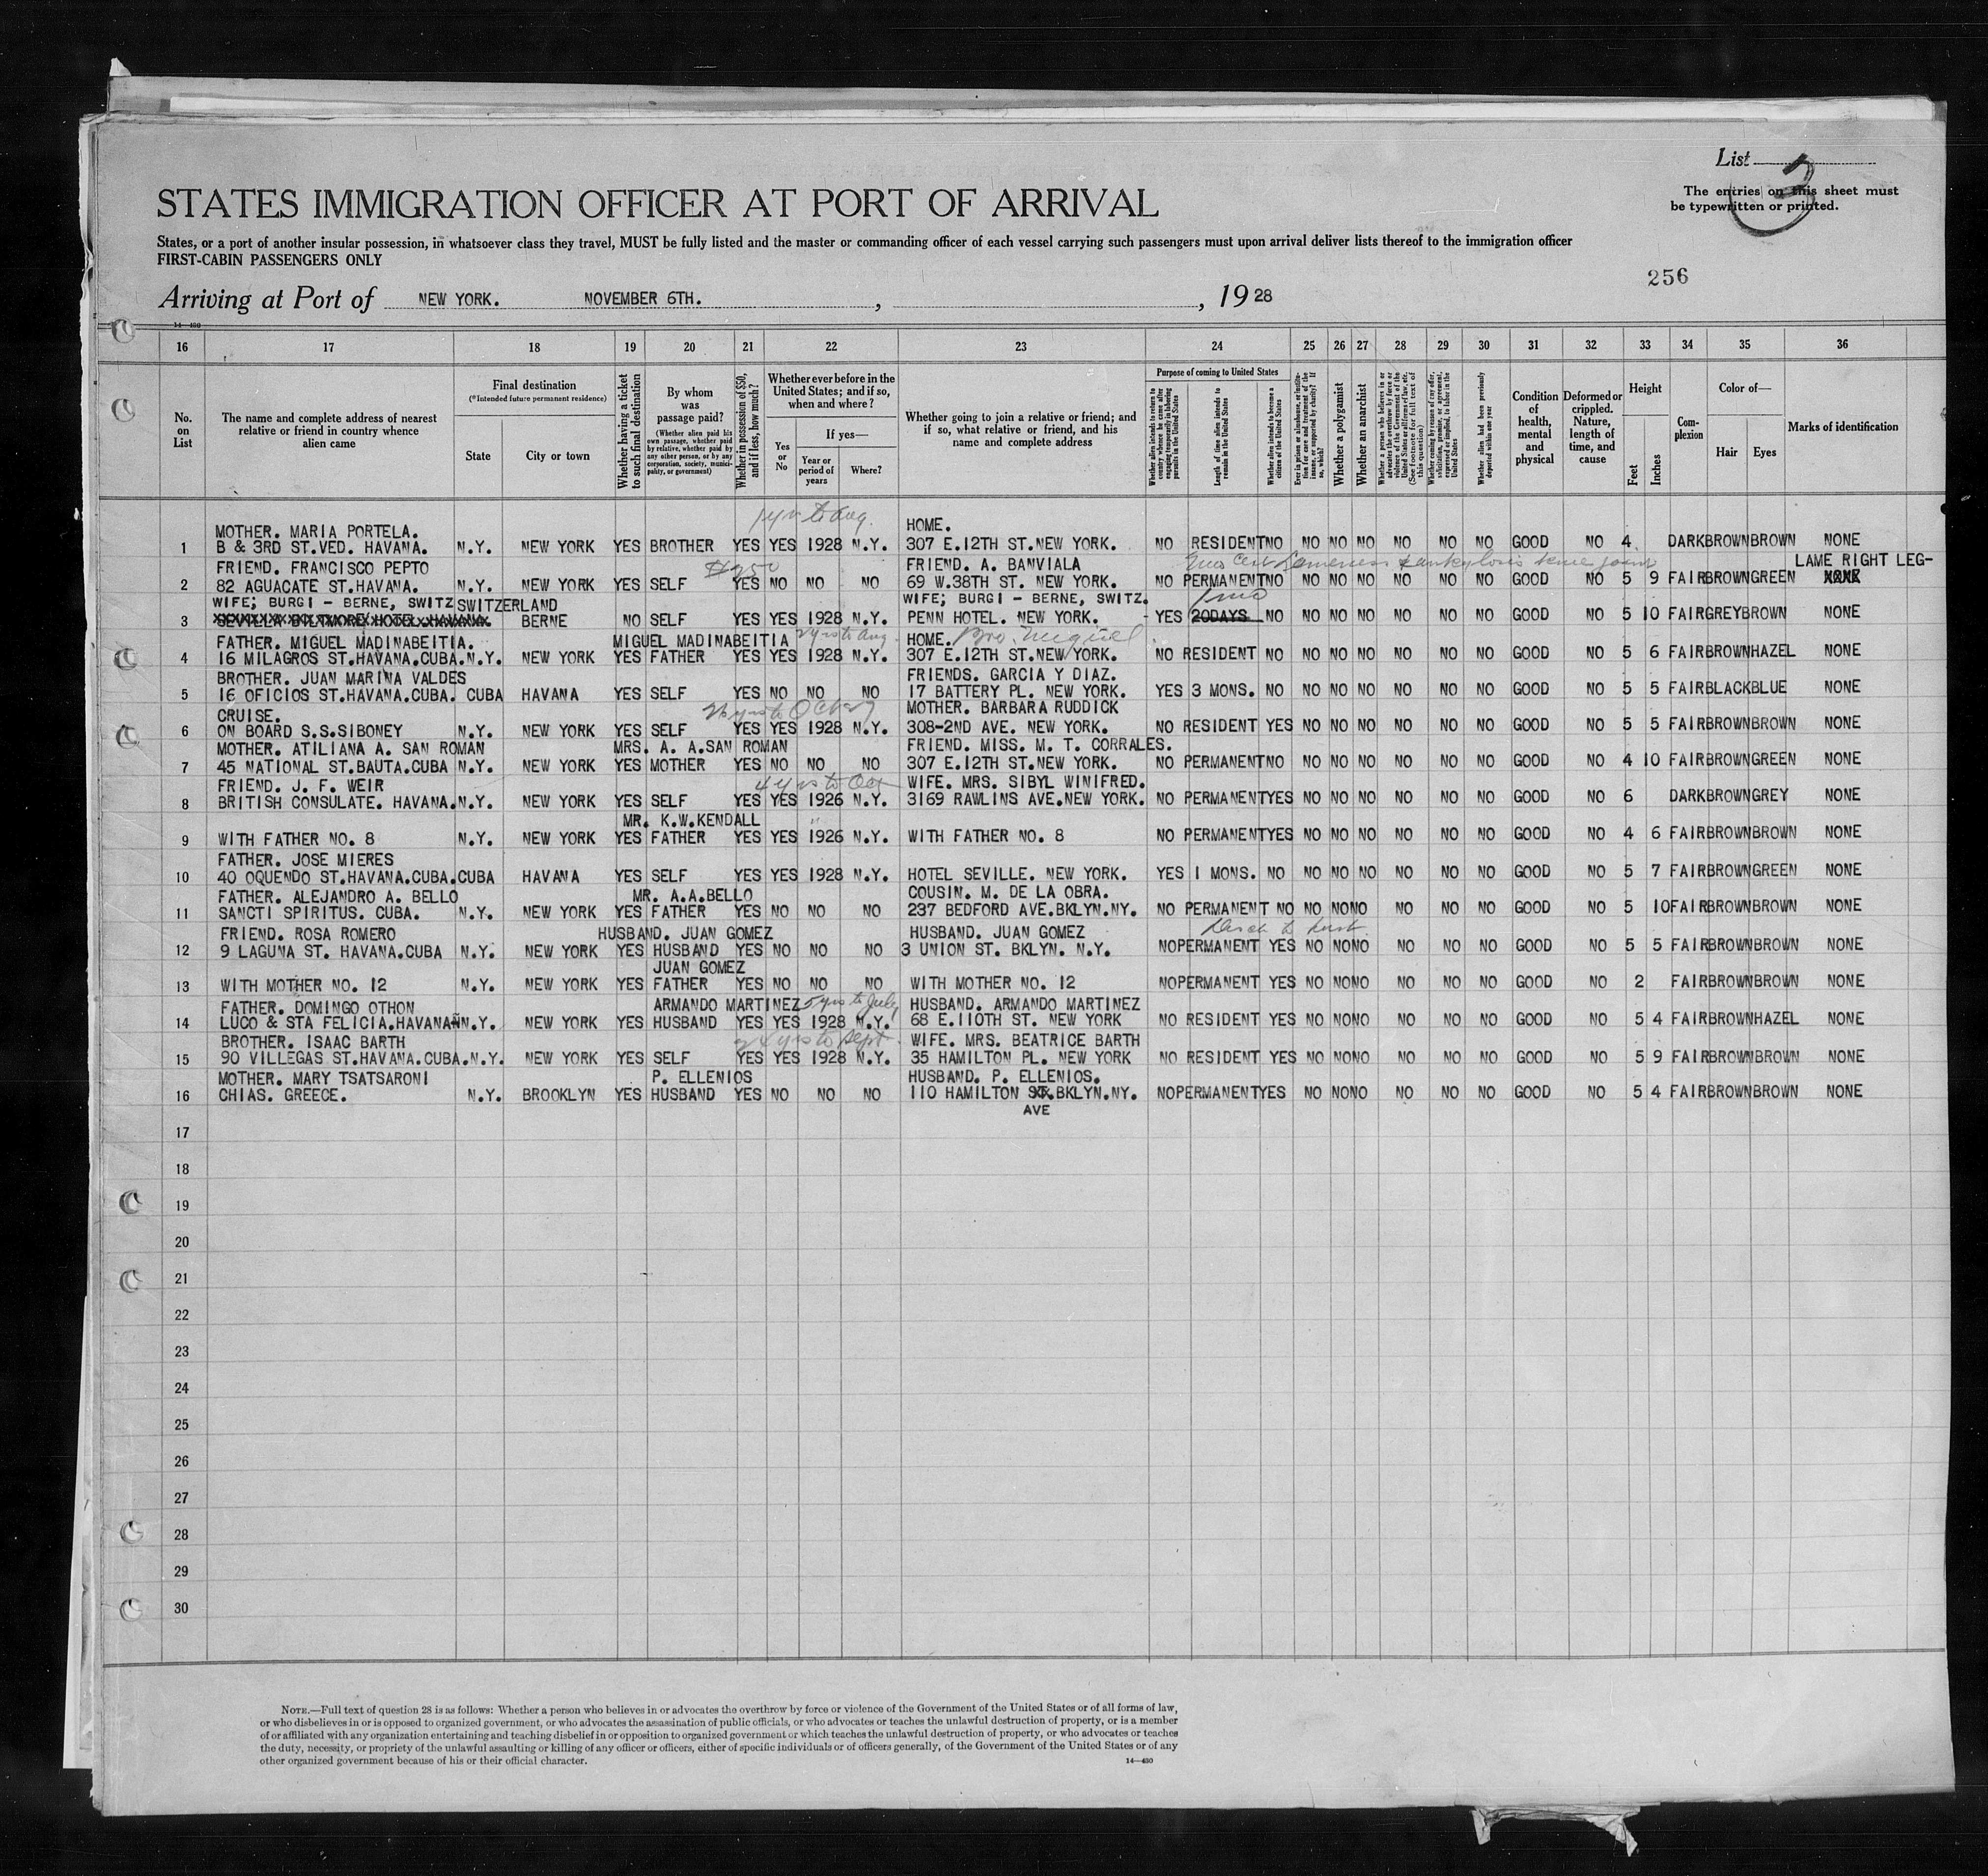 List 3
The entries on this sheet must
be typewritten or printed.
STATES IMMIGRATION OFFICER AT PORT OF ARRIVAL
States, or a port of another insular possession, in whatsoever class they travel, MUST be fully listed and the master or commanding officer of each vessel carrying such passengers must upon arrival deliver lists thereof to the immigration officer
FIRST-CABIN PASSENGERS ONLY
256
Arriving at Port of NEW YORK. NOVEMBER 6TH. , , 1928
14—430
16 17 18 19 20 21 22 23 24 25 26 27 28 29 30 31 32 33 34 35 36
No. on List
The name and complete address of nearest relative or friend in country whence alien came
Final destination
(*Intended future permanent residence)
State
City or town
Whether having a ticket to such final destination
By whom was passage paid?
(Whether alien paid his own passage, whether paid by relative, whether paid by any other person, or by any corporation, society, municipality, or government)
Whether in possession of $50, and if less, how much?
Whether ever before in the United States; and if so, when and where?
Yes or No
If yes—
Year or period of years
Where?
Whether going to join a relative or friend; and if so, what relative or friend, and his name and complete address
Purpose of coming to United States
Whether alien intends to return to country whence he came after engaging temporarily in laboring pursuits in the United States
Length of time alien intends to remain in the United States
Whether alien intends to become a citizen of the United States
Ever in prison or almshouse, or institution for care and treatment of the insane, or supported by charity? If so, which?
Whether a polygamist
Whether an anarchist
Whether a person who believes in or advocates the overthrow by force or violence of the Government of the United States or all forms of law, etc. (See footnote for full text of this question)
Whether coming by reason of any offer, solicitation, promise, or agreement, expressed or implied, to labor in the United States
Whether alien had been previously deported within one year
Condition of health, mental and physical
Deformed or crippled. Nature, length of time, and cause
Height
Feet
Inches
Complexion
Color of—
Hair
Eyes
Marks of identification
1 yr to Aug.
MOTHER. MARIA PORTELA. HOME.
1 B & 3RD ST.VED. HAVANA. N.Y. NEW YORK YES BROTHER YES YES 1928 N.Y. 307 E.12TH ST.NEW YORK. NO RESIDENT NO NO NO NO NO NO NO GOOD NO 4 DARK BROWN BROWN NONE
FRIEND. FRANCISCO PEPTO $250 FRIEND. A. BANVIALA Lameness knee joint LAME RIGHT LEG-
2 82 AGUACATE ST.HAVANA. N.Y. NEW YORK YES SELF YES NO NO NO 69 W.38TH ST. NEW YORK. NO PERMANENT NO NO NO NO NO NO NO GOOD NO 5 9 FAIR BROWN GREEN NONE
WIFE; BURGI - BERNE, SWITZ SWITZERLAND WIFE; BURGI - BERNE, SWITZ. 1 mo
3 SEVILLA BILTMORE HOTEL HAVANA. BERNE NO SELF YES YES 1928 N.Y. PENN HOTEL. NEW YORK. YES 20DAYS NO NO NO NO NO NO NO GOOD NO 5 10 FAIR GREY BROWN NONE
FATHER. MIGUEL MADINABEITIA. MIGUEL MADINABEITIA yrs to Aug. HOME. Bro. Miguel
4 16 MILAGROS ST.HAVANA.CUBA. N.Y. NEW YORK YES FATHER YES YES 1928 N.Y. 307 E.12TH ST.NEW YORK. NO RESIDENT NO NO NO NO NO NO NO GOOD NO 5 6 FAIR BROWN HAZEL NONE
BROTHER. JUAN MARINA VALDES FRIENDS. GARCIA Y DIAZ.
5 16 OFICIOS ST.HAVANA.CUBA. CUBA HAVANA YES SELF YES NO NO NO 17 BATTERY PL. NEW YORK. YES 3 MONS. NO NO NO NO NO NO NO GOOD NO 5 5 FAIR BLACK BLUE NONE
CRUISE. yrs to Oct MOTHER. BARBARA RUDDICK
6 ON BOARD S.S.SIBONEY N.Y. NEW YORK YES SELF YES YES 1928 N.Y. 308-2ND AVE. NEW YORK. NO RESIDENT YES NO NO NO NO NO NO GOOD NO 5 5 FAIR BROWN BROWN NONE
MOTHER. ATILIANA A. SAN ROMAN MRS. A. A.SAN ROMAN FRIEND. MISS. M. T. CORRALES.
7 45 NATIONAL ST.BAUTA.CUBA N.Y. NEW YORK YES MOTHER YES NO NO NO 307 E.12TH ST.NEW YORK. NO PERMANENT NO NO NO NO NO NO NO GOOD NO 4 10 FAIR BROWN GREEN NONE
FRIEND. J. F. WEIR 4 yrs to Oct WIFE. MRS. SIBYL WINIFRED.
8 BRITISH CONSULATE. HAVANA. N.Y. NEW YORK YES SELF YES YES 1926 N.Y. 3169 RAWLINS AVE.NEW YORK. NO PERMANENT YES NO NO NO NO NO NO GOOD NO 6 DARK BROWN GREY NONE
MR. K.W.KENDALL "
9 WITH FATHER NO. 8 N.Y. NEW YORK YES FATHER YES YES 1926 N.Y. WITH FATHER NO. 8 NO PERMANENT YES NO NO NO NO NO NO GOOD NO 4 6 FAIR BROWN BROWN NONE
FATHER. JOSE MIERES
10 40 OQUENDO ST.HAVANA.CUBA. CUBA HAVANA YES SELF YES YES 1928 N.Y. HOTEL SEVILLE. NEW YORK. YES 1 MONS. NO NO NO NO NO NO NO GOOD NO 5 7 FAIR BROWN GREEN NONE
FATHER. ALEJANDRO A. BELLO MR. A.A.BELLO COUSIN. M. DE LA OBRA.
11 SANCTI SPIRITUS. CUBA. N.Y. NEW YORK YES FATHER YES NO NO NO 237 BEDFORD AVE.BKLYN.NY. NO PERMANENT NO NO NO NO NO NO NO GOOD NO 5 10 FAIR BROWN BROWN NONE
FRIEND. ROSA ROMERO HUSBAND. JUAN GOMEZ HUSBAND. JUAN GOMEZ
12 9 LAGUNA ST. HAVANA.CUBA N.Y. NEW YORK YES HUSBAND YES NO NO NO 3 UNION ST. BKLYN. N.Y. NO PERMANENT YES NO NO NO NO NO NO GOOD NO 5 5 FAIR BROWN BROWN NONE
JUAN GOMEZ
13 WITH MOTHER NO. 12 N.Y. NEW YORK YES FATHER YES NO NO NO WITH MOTHER NO. 12 NO PERMANENT YES NO NO NO NO NO NO GOOD NO 2 FAIR BROWN BROWN NONE
FATHER. DOMINGO OTHON ARMANDO MARTINEZ 5 yrs to July HUSBAND. ARMANDO MARTINEZ
14 LUCO & STA FELICIA.HAVANA N.Y. NEW YORK YES HUSBAND YES YES 1928 N.Y. 68 E.110TH ST. NEW YORK NO RESIDENT YES NO NO NO NO NO NO GOOD NO 5 4 FAIR BROWN HAZEL NONE
BROTHER. ISAAC BARTH 24 yrs to Sept. WIFE. MRS. BEATRICE BARTH
15 90 VILLEGAS ST.HAVANA.CUBA. N.Y. NEW YORK YES SELF YES YES 1928 N.Y. 35 HAMILTON PL. NEW YORK NO RESIDENT YES NO NO NO NO NO NO GOOD NO 5 9 FAIR BROWN BROWN NONE
MOTHER. MARY TSATSARONI P. ELLENIOS HUSBAND. P. ELLENIOS.
16 CHIAS. GREECE. N.Y. BROOKLYN YES HUSBAND YES NO NO NO 110 HAMILTON ST.BKLYN.NY. NO PERMANENT YES NO NO NO NO NO NO GOOD NO 5 4 FAIR BROWN BROWN NONE
AVE
17
18
19
20
21
22
23
24
25
26
27
28
29
30
NOTE.—Full text of question 28 is as follows: Whether a person who believes in or advocates the overthrow by force or violence of the Government of the United States or of all forms of law,
or who disbelieves in or is opposed to organized government, or who advocates the assassination of public officials, or who advocates or teaches the unlawful destruction of property, or is a member
of or affiliated with any organization entertaining and teaching disbelief in or opposition to organized government or which teaches the unlawful destruction of property, or who advocates or teaches
the duty, necessity, or propriety of the unlawful assaulting or killing of any officer or officers, either of specific individuals or of officers generally, of the Government of the United States or of any
other organized government because of his or their official character.
14—430